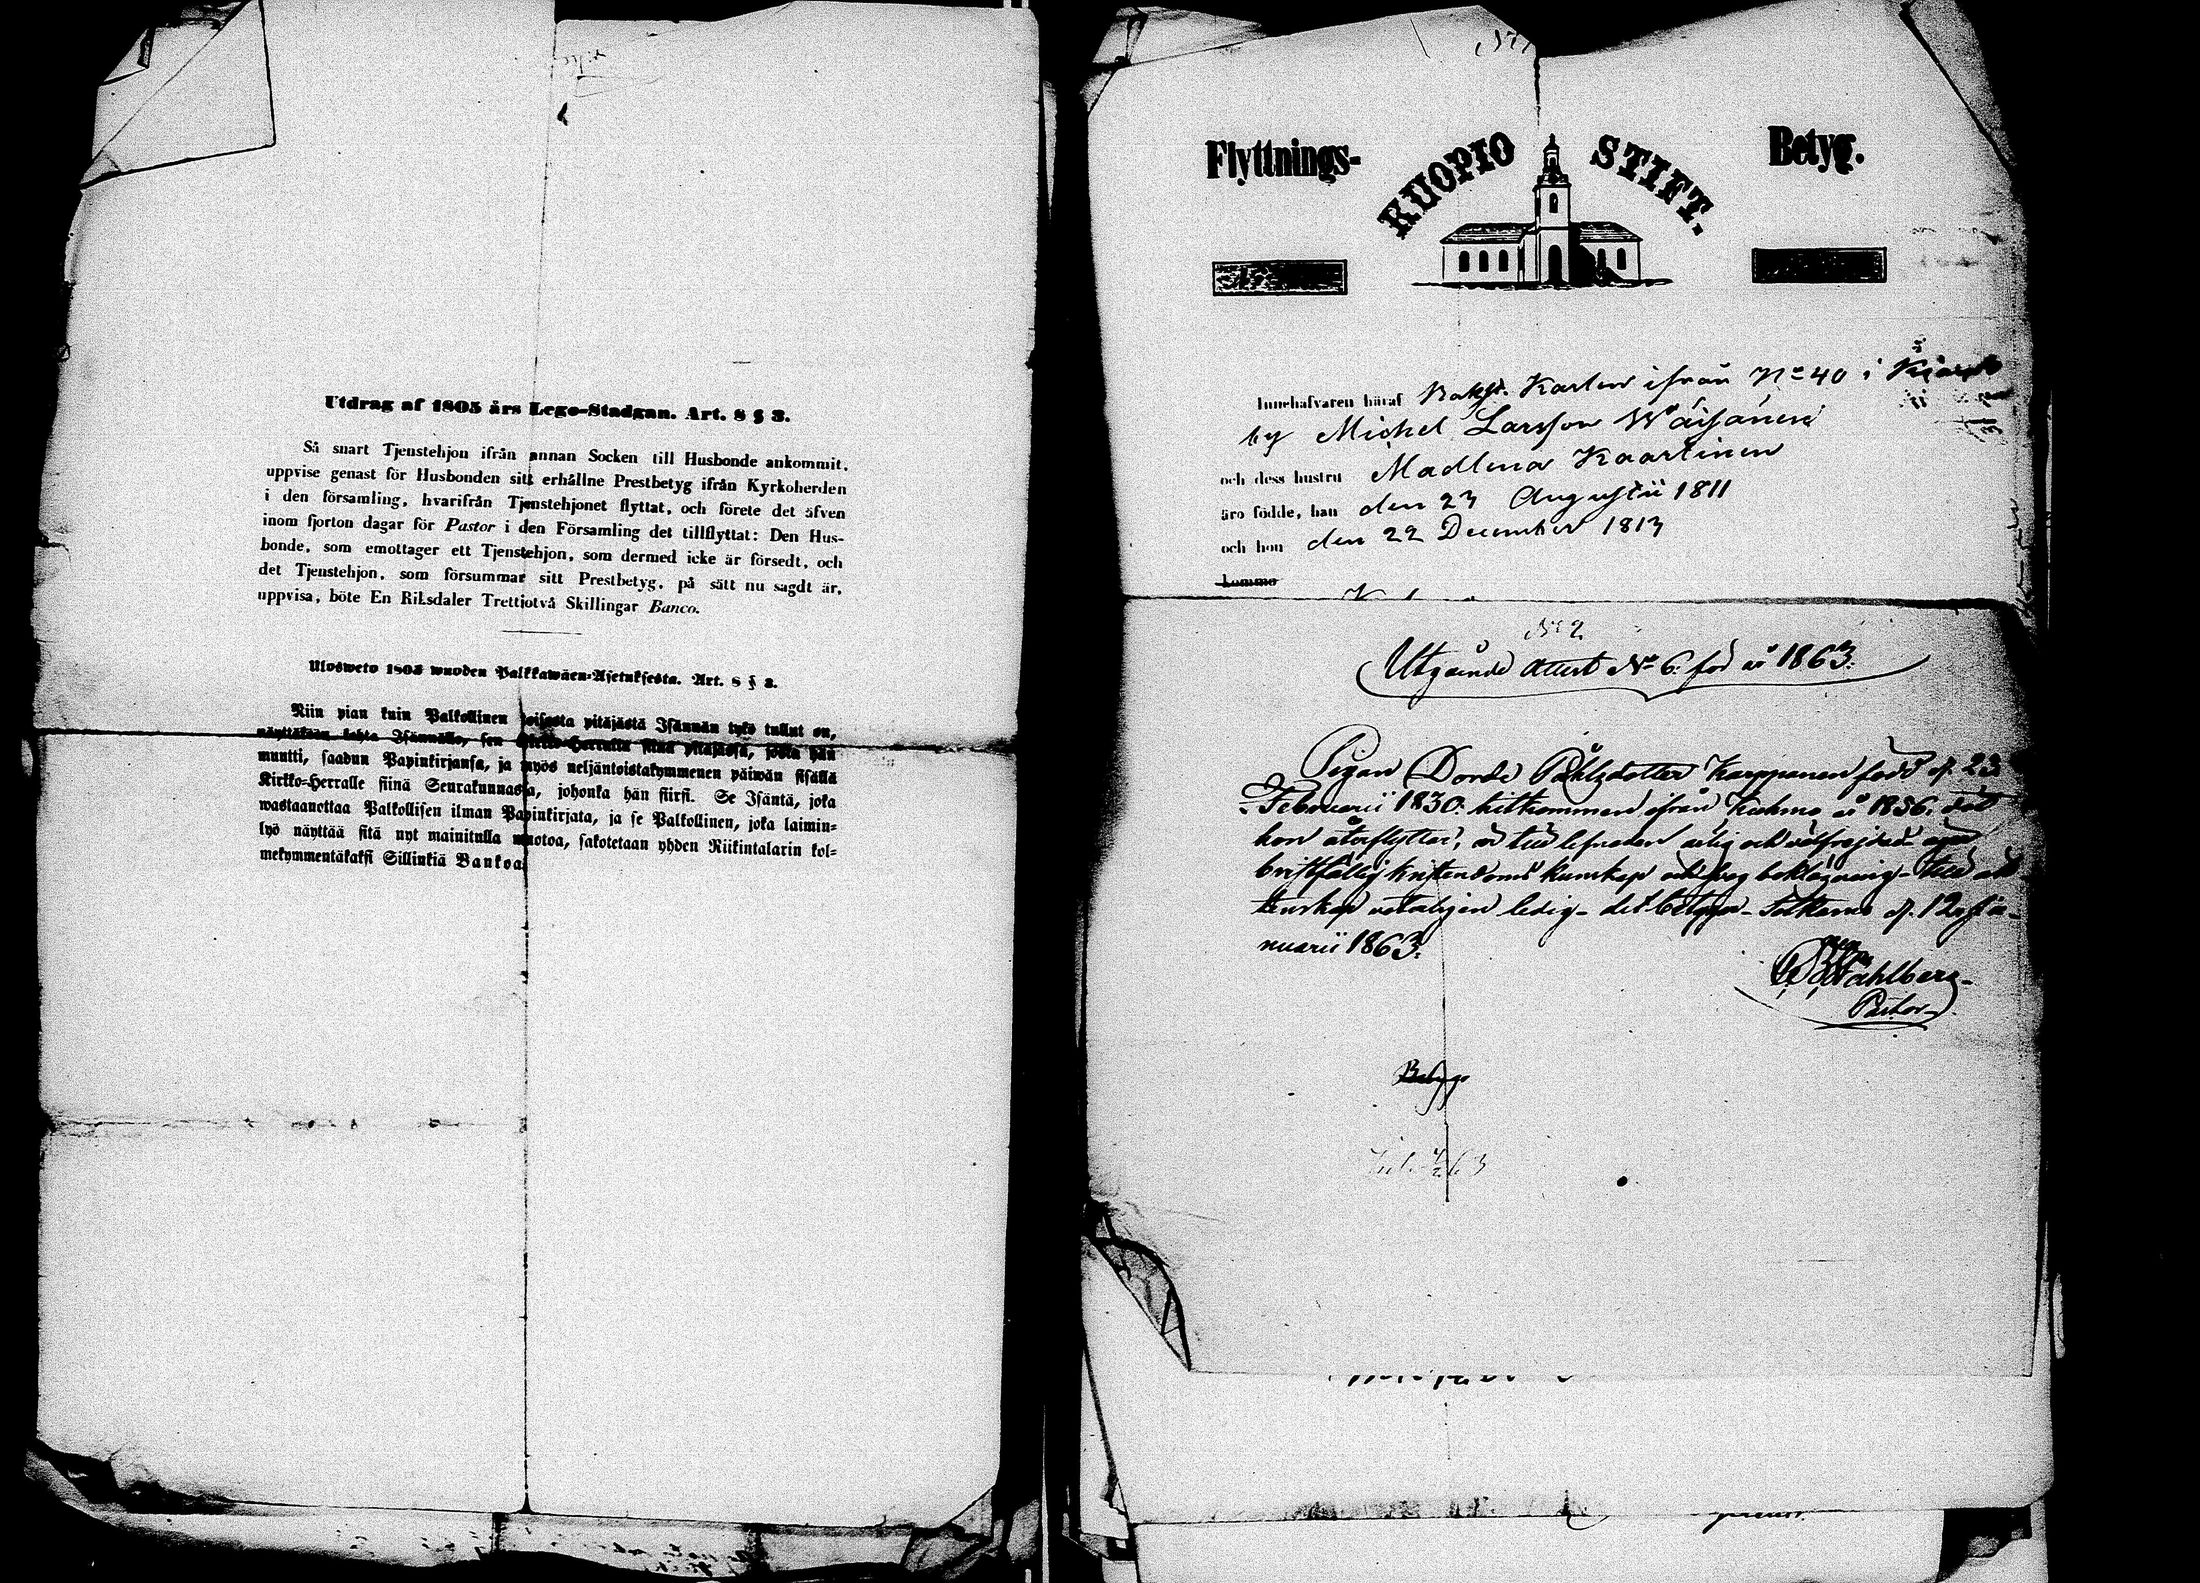 Utdrag af 1805 års Lego-Stadgan. Art. 8 § 3.
Så snart Tjenstehjon ifrån annan Socken till Husbonde ankommit,
uppvise genast för Husbonden sitt erhållne Prestbetyg ifrån Kyrkoherden
i den församling, hvarifrån Tjenstehjonet flyttat, och förete det äfven
inom fjorton dagar för Pastor i den Församling det tillflyttat: Den Hus-
bonde, som emottager ett Tjenstehjon, som dermed icke är försedt, och
det Tjenstehjon, som försummar sitt Prestbetyg, på sätt nu sagdt är,
uppvisa, böte En Riksdaler Trettiotvå Skillingar Banco.
Ulosweto 1805 wuoden Palkkawäen-Asetuksesta. Art. 8 § 3.
Niin pian kuin Palkollinen toisesta pitäjästä Isännän tykö tullut on,
näyttäköön kohta Isännälle, sen Kirkko-Herralta siinä pitäjässä, josta hän
muutti, saadun Papinkirjansa, ja myös neljäntoistakymmenen päiwän sisällä
Kirkko-Herralle siinä Seurakunnassa, johonka hän siirsi. Se Isäntä, joka
wastaanottaa Palkollisen ilman Papinkirjata, ja se Palkollinen, joka laimin-
lyö näyttää sitä nyt mainitulla muotoa, sakotetaan yhden Riikintalarin kol-
mekymmentäkaksi Sillinkiä Bankoa.
Flyttnings- KUOPIO STIFT. Betyg.
Innehafvaren häraf Karlen ifrån No 40 i
by Michel Larsson Wäisänen
och dess hustru Madlena Kaartinen
äro födde, han den 23 Augusti 1811
och hon den 22 December 1813
komma
No 2
Utgående Attest No 6. för år 1863.
Pigan Dorde Påhlsdotter Karppanen född d. 23
Februarii 1830. hitkommen ifrån Kuhmo år 1856. dit
hon återflyttar, är till lefnaden ärlig och välfrejdad äger
bristfällig kristendoms kunskap och till äk
tenskap ledig - det betygar Sotkamo d. 12 Ja-
nuarii 1863.
Wahlberg
Pastor
Betyg